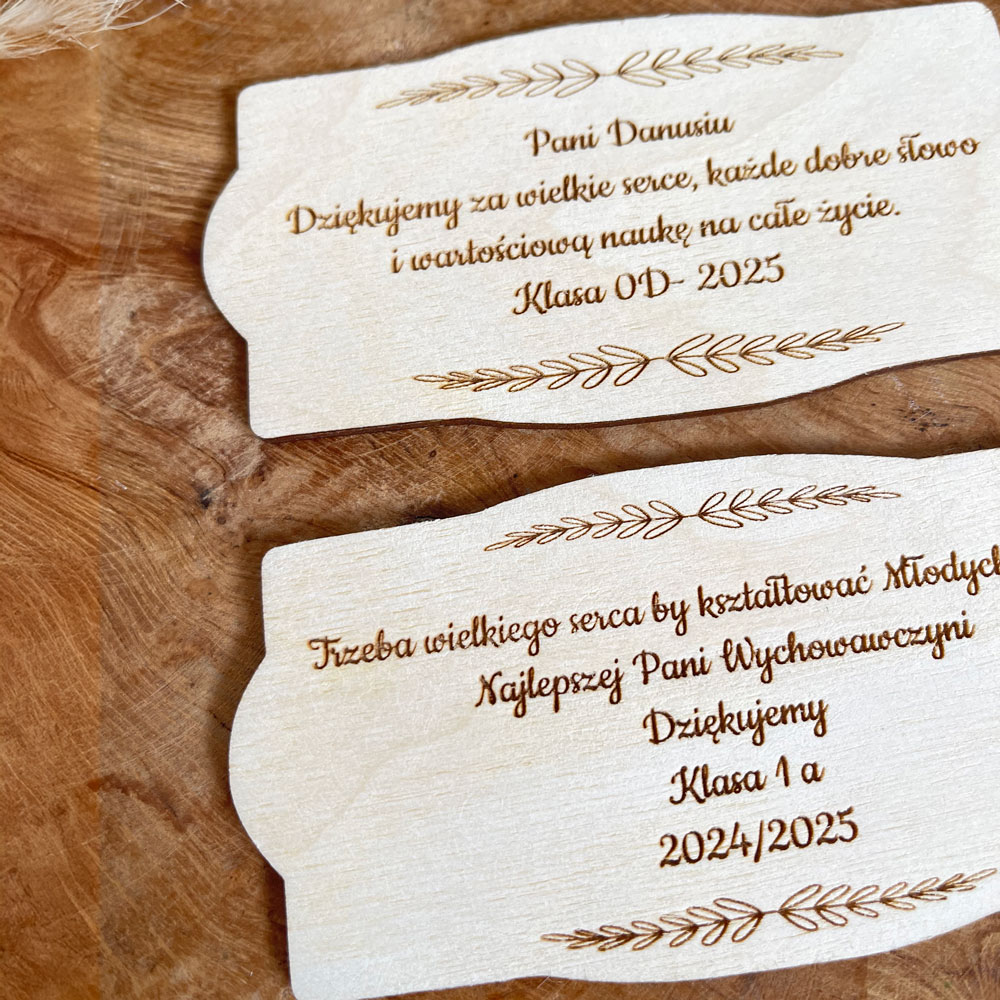 Pani Danusiu
Dziękujemy za wielkie serce, każde dobre słowo
i wartościową naukę na całe życie.
Klasa 0D- 2025
Trzeba wielkiego serca by kształtować Młodych
Najlepszej Pani Wychowawczyni
Dziękujemy
Klasa 1 a
2024/2025